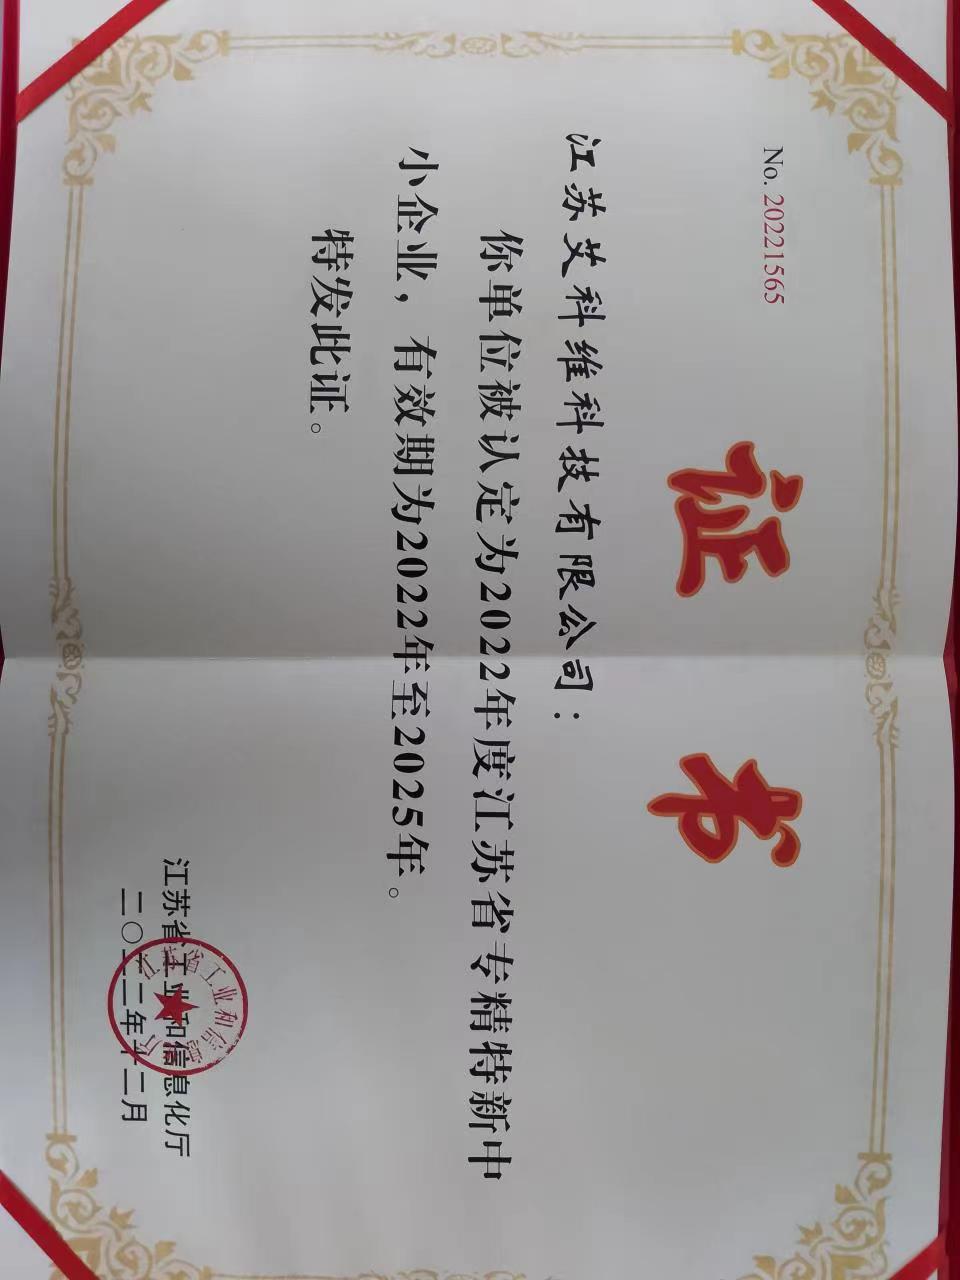 No. 20221565
证书
江苏艾科维科技有限公司：
你单位被认定为2022年度江苏省专精特新中
小企业，有效期为2022年至2025年。
特发此证。
江苏省工业和信息化厅
二〇二二年十二月
江苏省工业和信息化厅